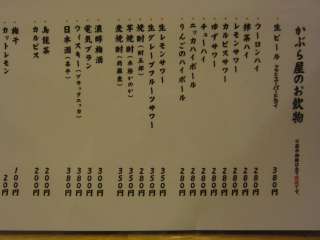 かぶら屋のお飲物
・生ビール アサヒスーパードライ 380円
・ウーロンハイ 280円
・抹茶ハイ 280円
・レモンサワー 280円
・カルピスサワー 280円
・ゆずサワー 280円
・チューハイ
・ニッカハイボール 280円
・りんごのハイボール 280円
・生レモンサワー 350円
・生グレープフルーツサワー 350円
・焼酎 280円
・芋焼酎 350円
・麦焼酎 350円
・濃厚梅酒 300円
・電気ブラン
・ウィスキー(ブラックニッカ) 380円
・日本酒 380円
・烏龍茶 200円
・カルピス 200円
・梅干 100円
・カットレモン 20円